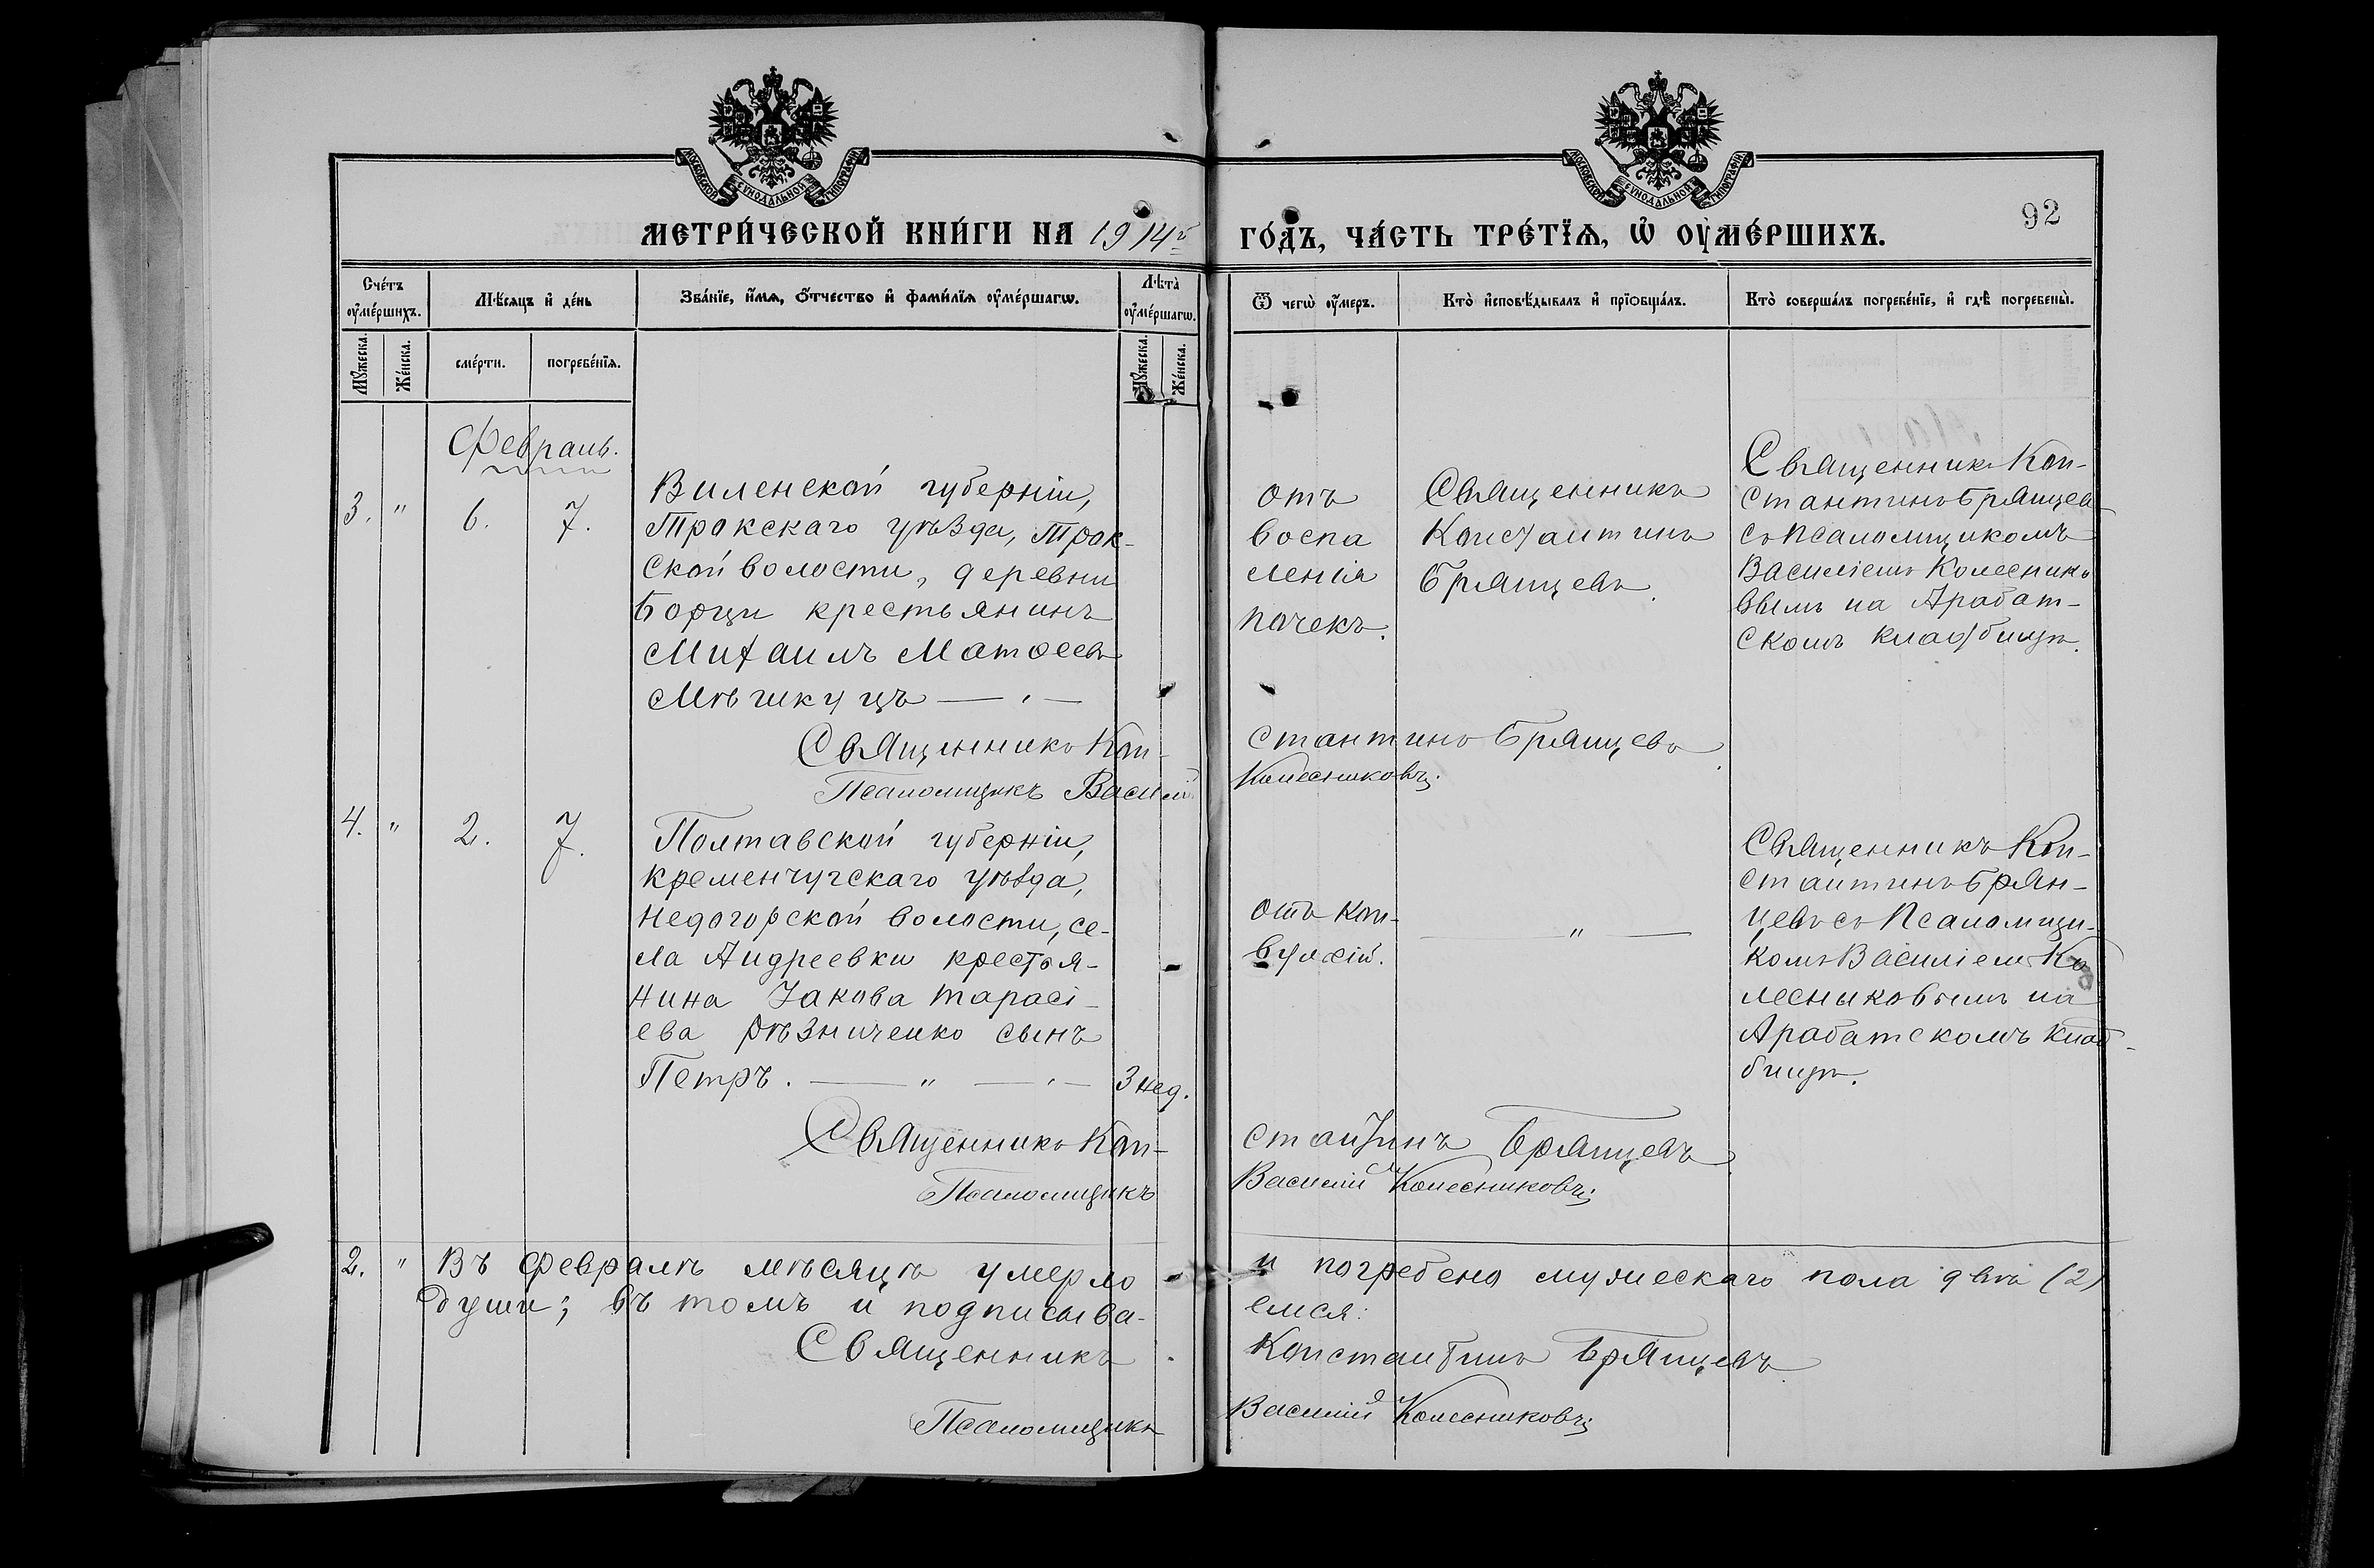 МОСКОВСКОЙ СѴНОДАЛЬНОЙ ТИПОГРАФІИ
МОСКОВСКОЙ СѴНОДАЛЬНОЙ ТИПОГРАФІИ
МЕТРИ́ЧЕСКОЙ КНИ́ГИ НА 1914й
ГО́ДЪ, ЧА́СТЬ ТРЕ́ТЇѦ, Ѡ҆ ОУ҆МЕ́РШИХЪ.
92
Сче́тъ оу҆ме́ршихъ.
Мѣ́сѧцъ и҆ де́нь
Зва́нїе, и҆́мѧ, ѻ҆́тчество и҆ фами́лїѧ оу҆ме́ршагѡ.
Лѣта̀ оу҆ме́ршагѡ.
Ѿ чегѡ̀ оу҆́меръ.
Кто̀ и҆сповѣ́дывалъ и҆ прїѡбща́лъ.
Кто̀ соверша́лъ погребе́нїе, и҆ гдѣ̀ погребены̀.
Мꙋ́жеска.
Же́нска.
сме́рти.
погребе́нїѧ.
Мꙋ́жеска.
Же́нска.
Февраль.
3. " 6. 7.
Виленской губерніи,
Тракскаго уѣзда, Трак-
ской волости, деревни
Борци крестьянинъ
Михаилъ Матѳеевъ
Мѣшкуцъ
отъ
воспа
ленія
почекъ.
Священникъ
Константинъ
Брянцевъ.
Священникъ Кон-
стантинъ Брянцевъ
съ псаломщикомъ
Василіемъ Колеснико
вымъ на Арабат-
скомъ кладбищѣ.
Священникъ Кон-
стантинъ Брянцевъ
Псаломщикъ Василій
Колесниковъ
4. " 2. 7.
Полтавской губерніи,
Кременчугскаго уѣзда,
Недогорской волости, се-
ла Андреевки крестья-
нина Іакова Тарасі-
ева Рѣзниченко сынъ
Петръ. — " — 3 нед.
отъ кон-
вулсій.
"
Священникъ Кон-
стантинъ Брян-
цевъ съ Псаломщи-
комъ Василіемъ Ко
лесниковымъ на
Арабатскомъ клад-
бищѣ.
Священникъ Кон-
стантинъ Брянцевъ
Псаломщикъ
Василій Колесниковъ
2. " Въ февралѣ мѣсяцѣ умерло и погребено мужескаго пола двѣ (2)
души; въ томъ и подписыва-
емся:
Священникъ Константинъ Брянцевъ
Псаломщикъ Василій Колесниковъ